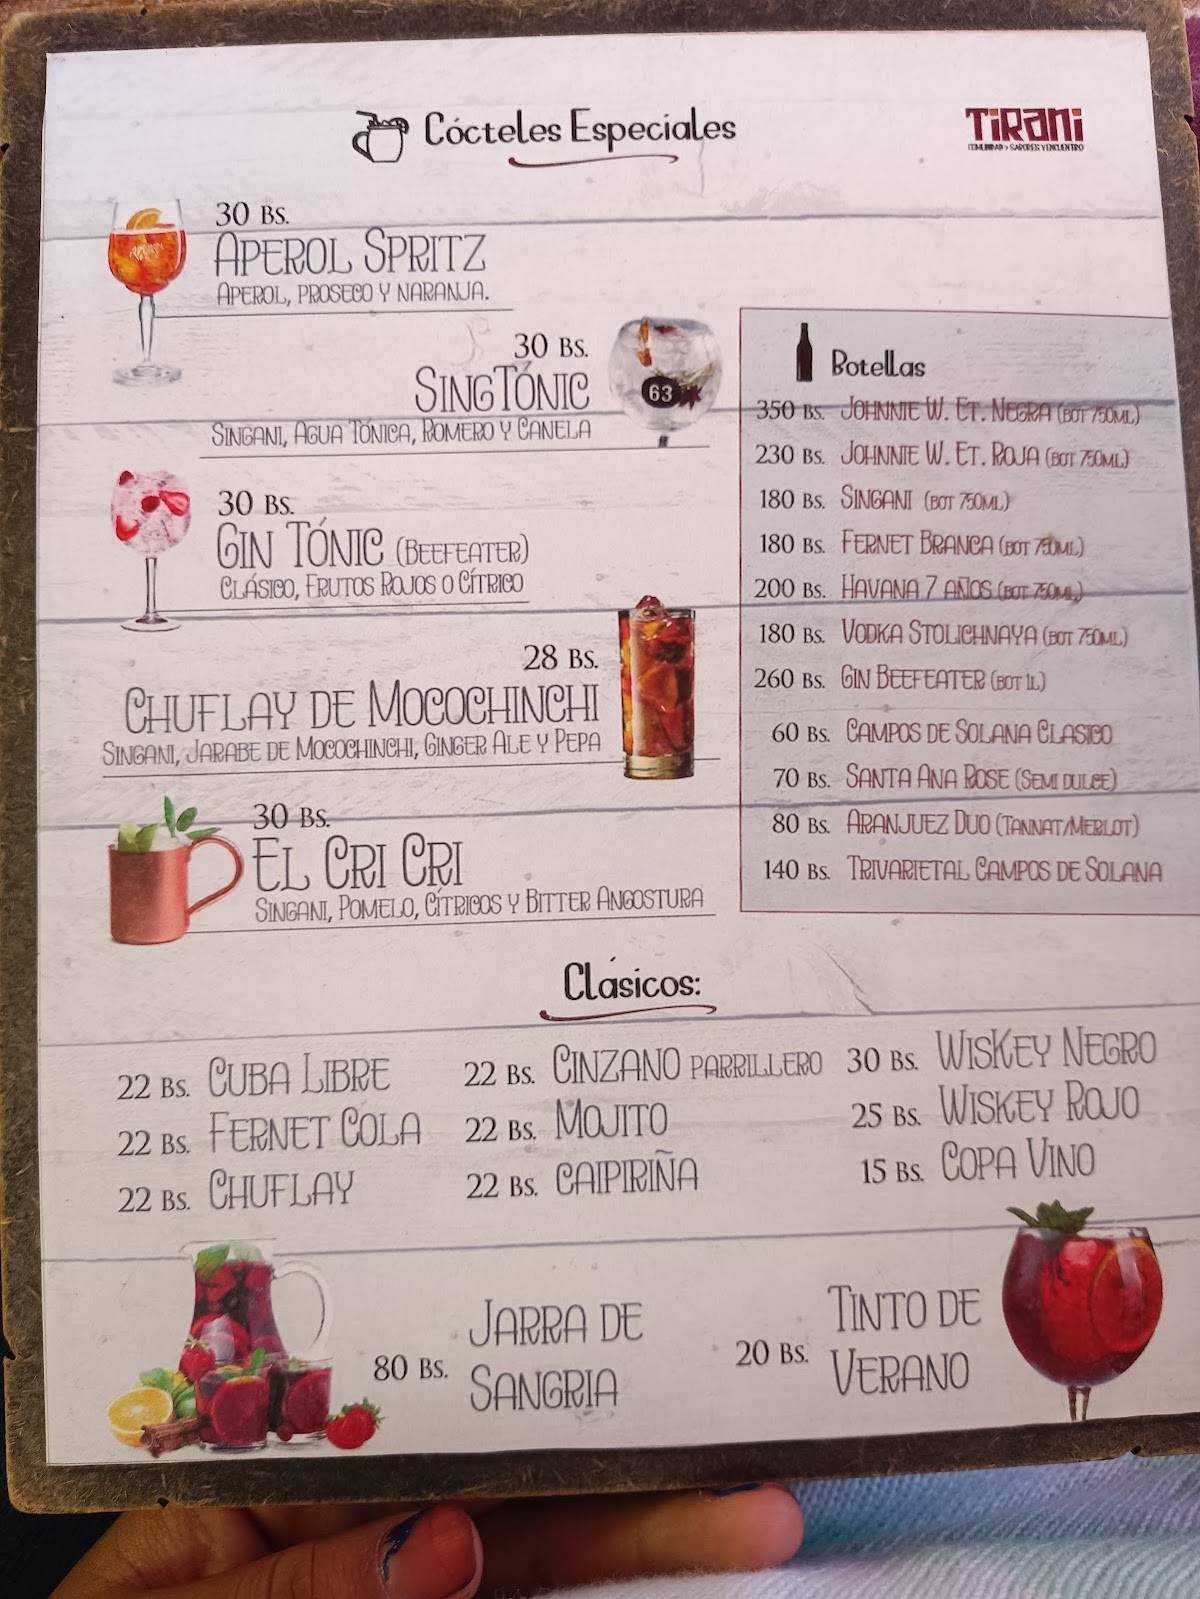 Cócteles Especiales
TiRani
COMUNIDAD > SABORES Y ENCUENTRO
30 Bs.
APEROL SPRITZ
APEROL, PROSECO Y NARANJA.
30 Bs.
SINGTÓNIC
SINGANI, AGUA TÓNICA, ROMERO Y CANELA
63
30 Bs.
GIN TÓNIC (BEEFEATER)
CLÁSICO, FRUTOS ROJOS O CÍTRICO
28 Bs.
CHUFLAY DE MOCOCHINCHI
SINGANI, JARABE DE MOCOCHINCHI, GINGER ALE Y PEPA
30 Bs.
EL CRI CRI
SINGANI, POMELO, CÍTRICOS Y BITTER ANGOSTURA
Botellas
350 Bs. JOHNNIE W. ET. NEGRA (BOT 750ML)
230 Bs. JOHNNIE W. ET. ROJA (BOT 750ML)
180 Bs. SINGANI (BOT 750ML)
180 Bs. FERNET BRANCA (BOT 750ML)
200 Bs. HAVANA 7 AÑOS (BOT 750ML)
180 Bs. VODKA STOLICHNAYA (BOT 750ML)
260 Bs. GIN BEEFEATER (BOT 1L)
60 Bs. CAMPOS DE SOLANA CLASICO
70 Bs. SANTA ANA ROSE (SEMI DULCE)
80 Bs. ARANJUEZ DUO (TANNAT/MERLOT)
140 Bs. TRIVARIETAL CAMPOS DE SOLANA
Clásicos:
22 Bs. CUBA LIBRE
22 Bs. FERNET COLA
22 Bs. CHUFLAY
22 Bs. CINZANO PARRILLERO
22 Bs. MOJITO
22 Bs. CAIPIRIÑA
30 Bs. WISKEY NEGRO
25 Bs. WISKEY ROJO
15 Bs. COPA VINO
80 Bs. JARRA DE
SANGRIA
20 Bs. TINTO DE
VERANO